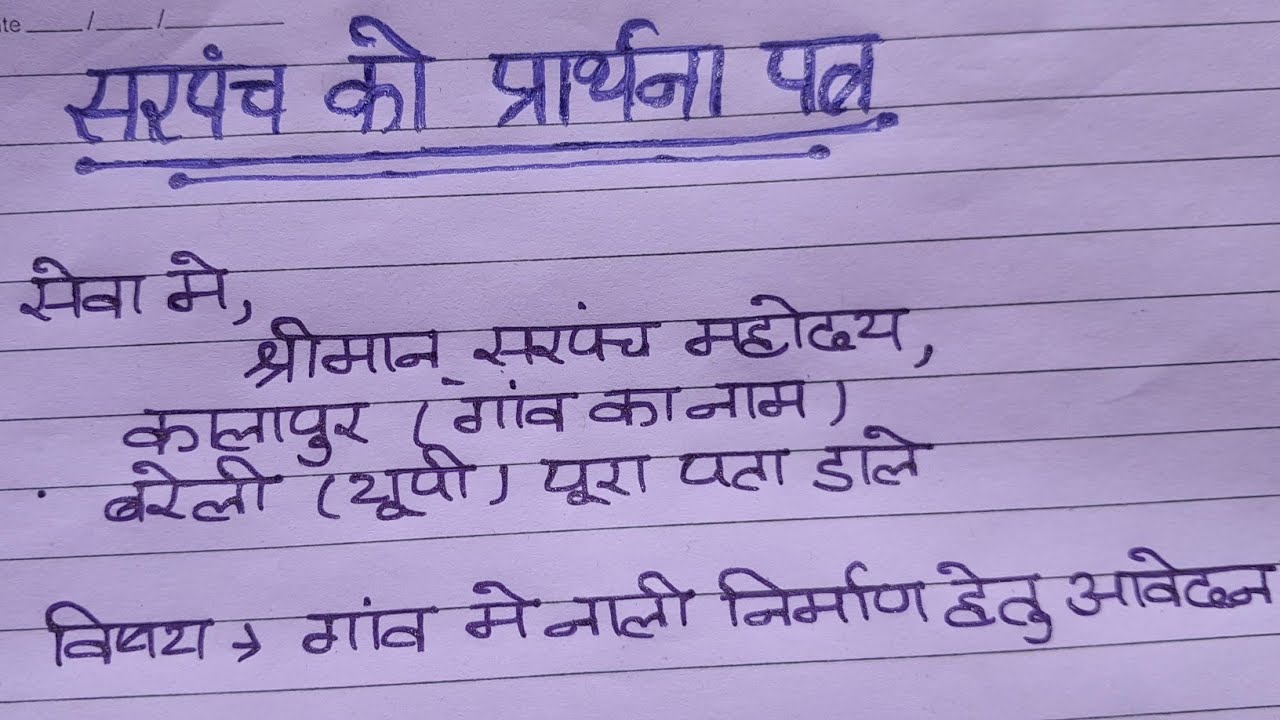 te ___/___/______
सरपंच को प्रार्थना पत्र
सेवा मे,
श्रीमान् सरपंच महोदय,
कालापुर (गांव का नाम)
बरेली (यूपी) पूरा पता डाले
विषय → गांव मे नाली निर्माण हेतु आवेदन